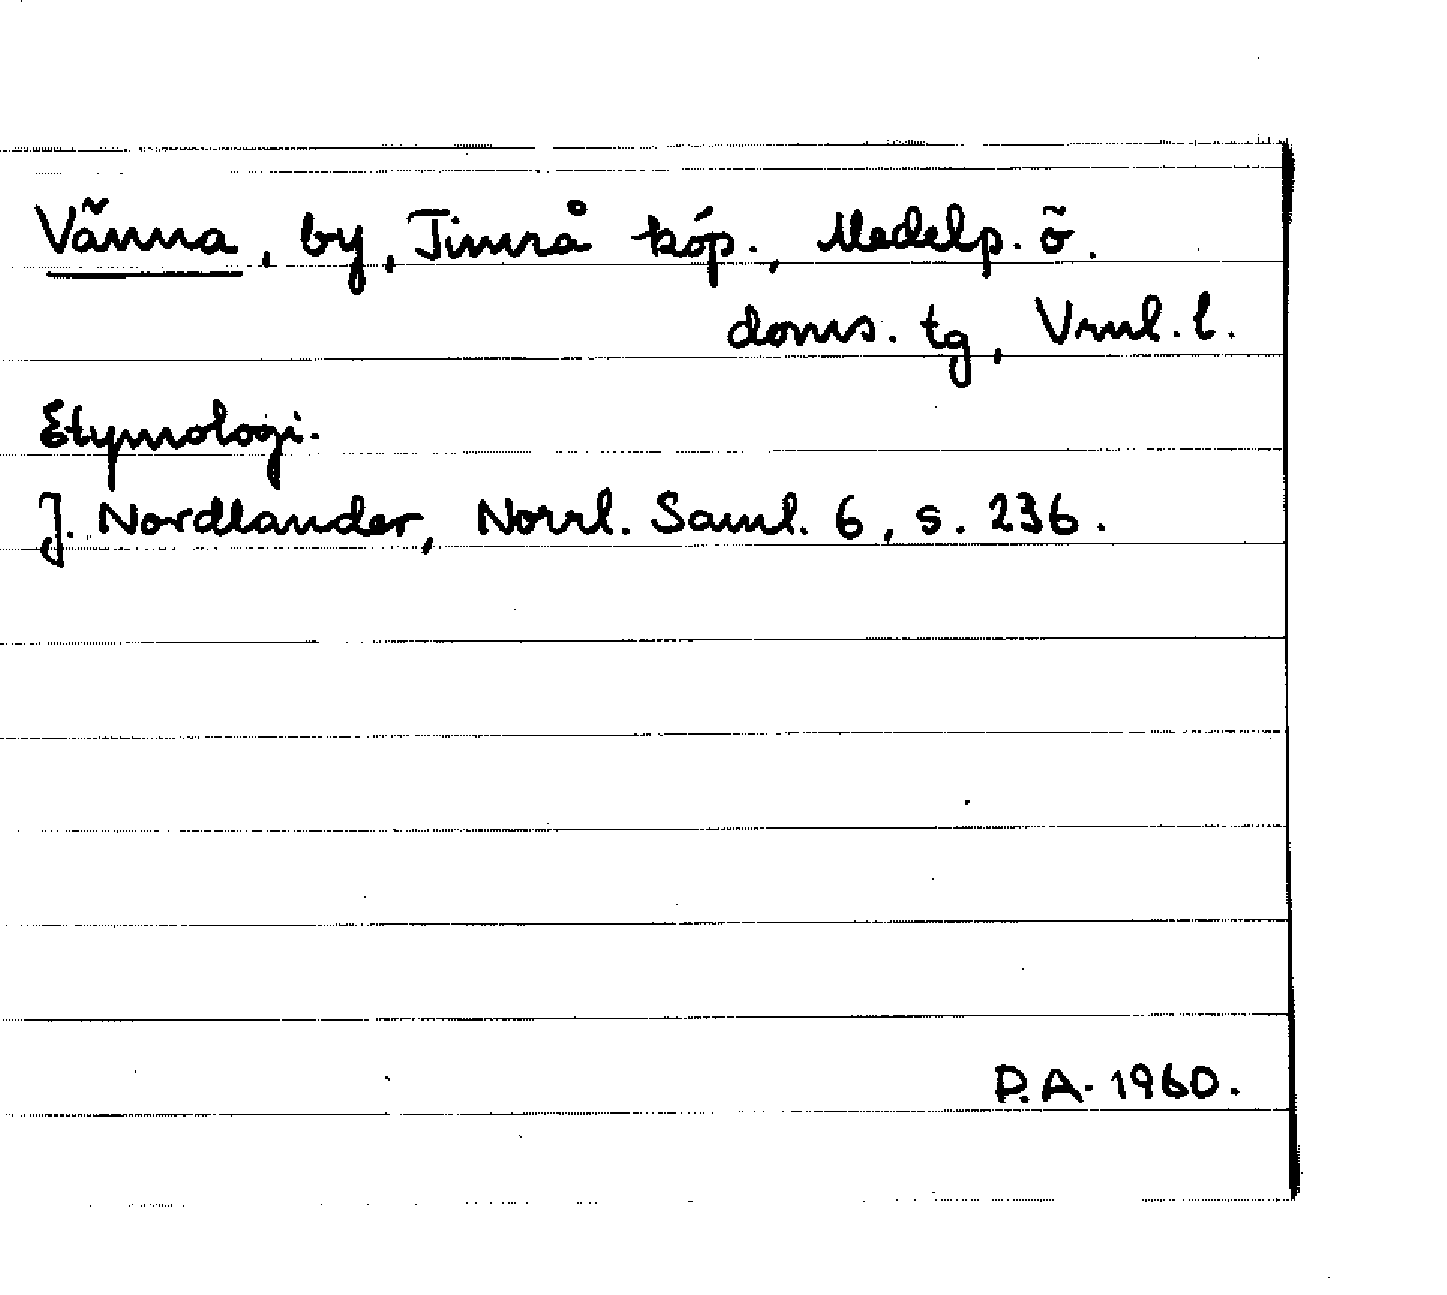 Vänna, by, Timrå köp., Medelp. ö.
doms. tg, Vrnl. l.
Etymologi.
J. Nordlander, Norrl. Saml. 6, s. 236.
P.A. 1960.